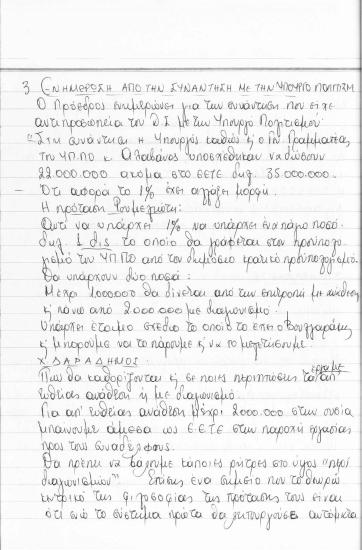 3 ΕΝΗΜΕΡΩΣΗ ΑΠΟ ΤΗΝ ΣΥΝΑΝΤΗΣΗ ΜΕ ΤΗΝ ΥΠΟΥΡΓΟ ΠΟΛΙΤΙΣΜ
Ο Πρόεδρος ενημερώνει για την συνάντηση που είχε
αντιπροσωπεία του Δ.Σ με την Υπουργό Πολιτισμού
"Στη συνάντηση η Υπουργός καθώς κ ο Γεν. Γραμματέας
του ΥΠ.ΠΟ κ. υποσχέθηκαν να δώσουν
22.000.000 ακόμα στο ΕΕΤΕ δηλ. 35.000.000.
— Ότι αφορά το 1% έχει αλλάξει μορφή.
Η πρόταση Ρουμελιώτη:
Αντί να υπάρχει 1% να υπάρχει ένα πάγιο ποσό.
δηλ. 1 δις το οποίο θα γράφεται στον προϋπολο
γισμό του ΥΠ.ΠΟ από τον δημόσιο κρατικό προϋπολογισμό.
Θα υπάρχουν δύο ποσά:
Μέχρι θα δίνεται από την επιτροπή με ανάθεση
κ πάνω από 2000.000 με διαγωνισμό.
Υπάρχει έτοιμο σχέδιο το οποίο το έχει ο
κ μπορούμε να το πάρουμε κ να το μελετήσουμε.
Χ ΔΑΡΑΔΗΜΟΣ
Πώς θα καθορίζονται κ σε ποιες περιπτώσεις τα έργα με απ'
ευθείας ανάθεση ή με διαγωνισμό.
Για απ' ευθείας ανάθεση μέχρι 2000.000 στην ουσία
μπαίνουμε άμεσα ως ΕΕΤΕ στην παροχή εργασίας
προς τους συναδέλφους.
Θα πρέπει να βάλουμε κάποιες ρήτρες στο ύψος "περί
διαγωνισμών". Επίσης ένα σημείο που το θεωρώ
κεντρικό της φιλοσοφίας της πρότασης τους είναι
ότι ενώ το σύστημα πρώτα θα λειτουργούσε αυτόματα